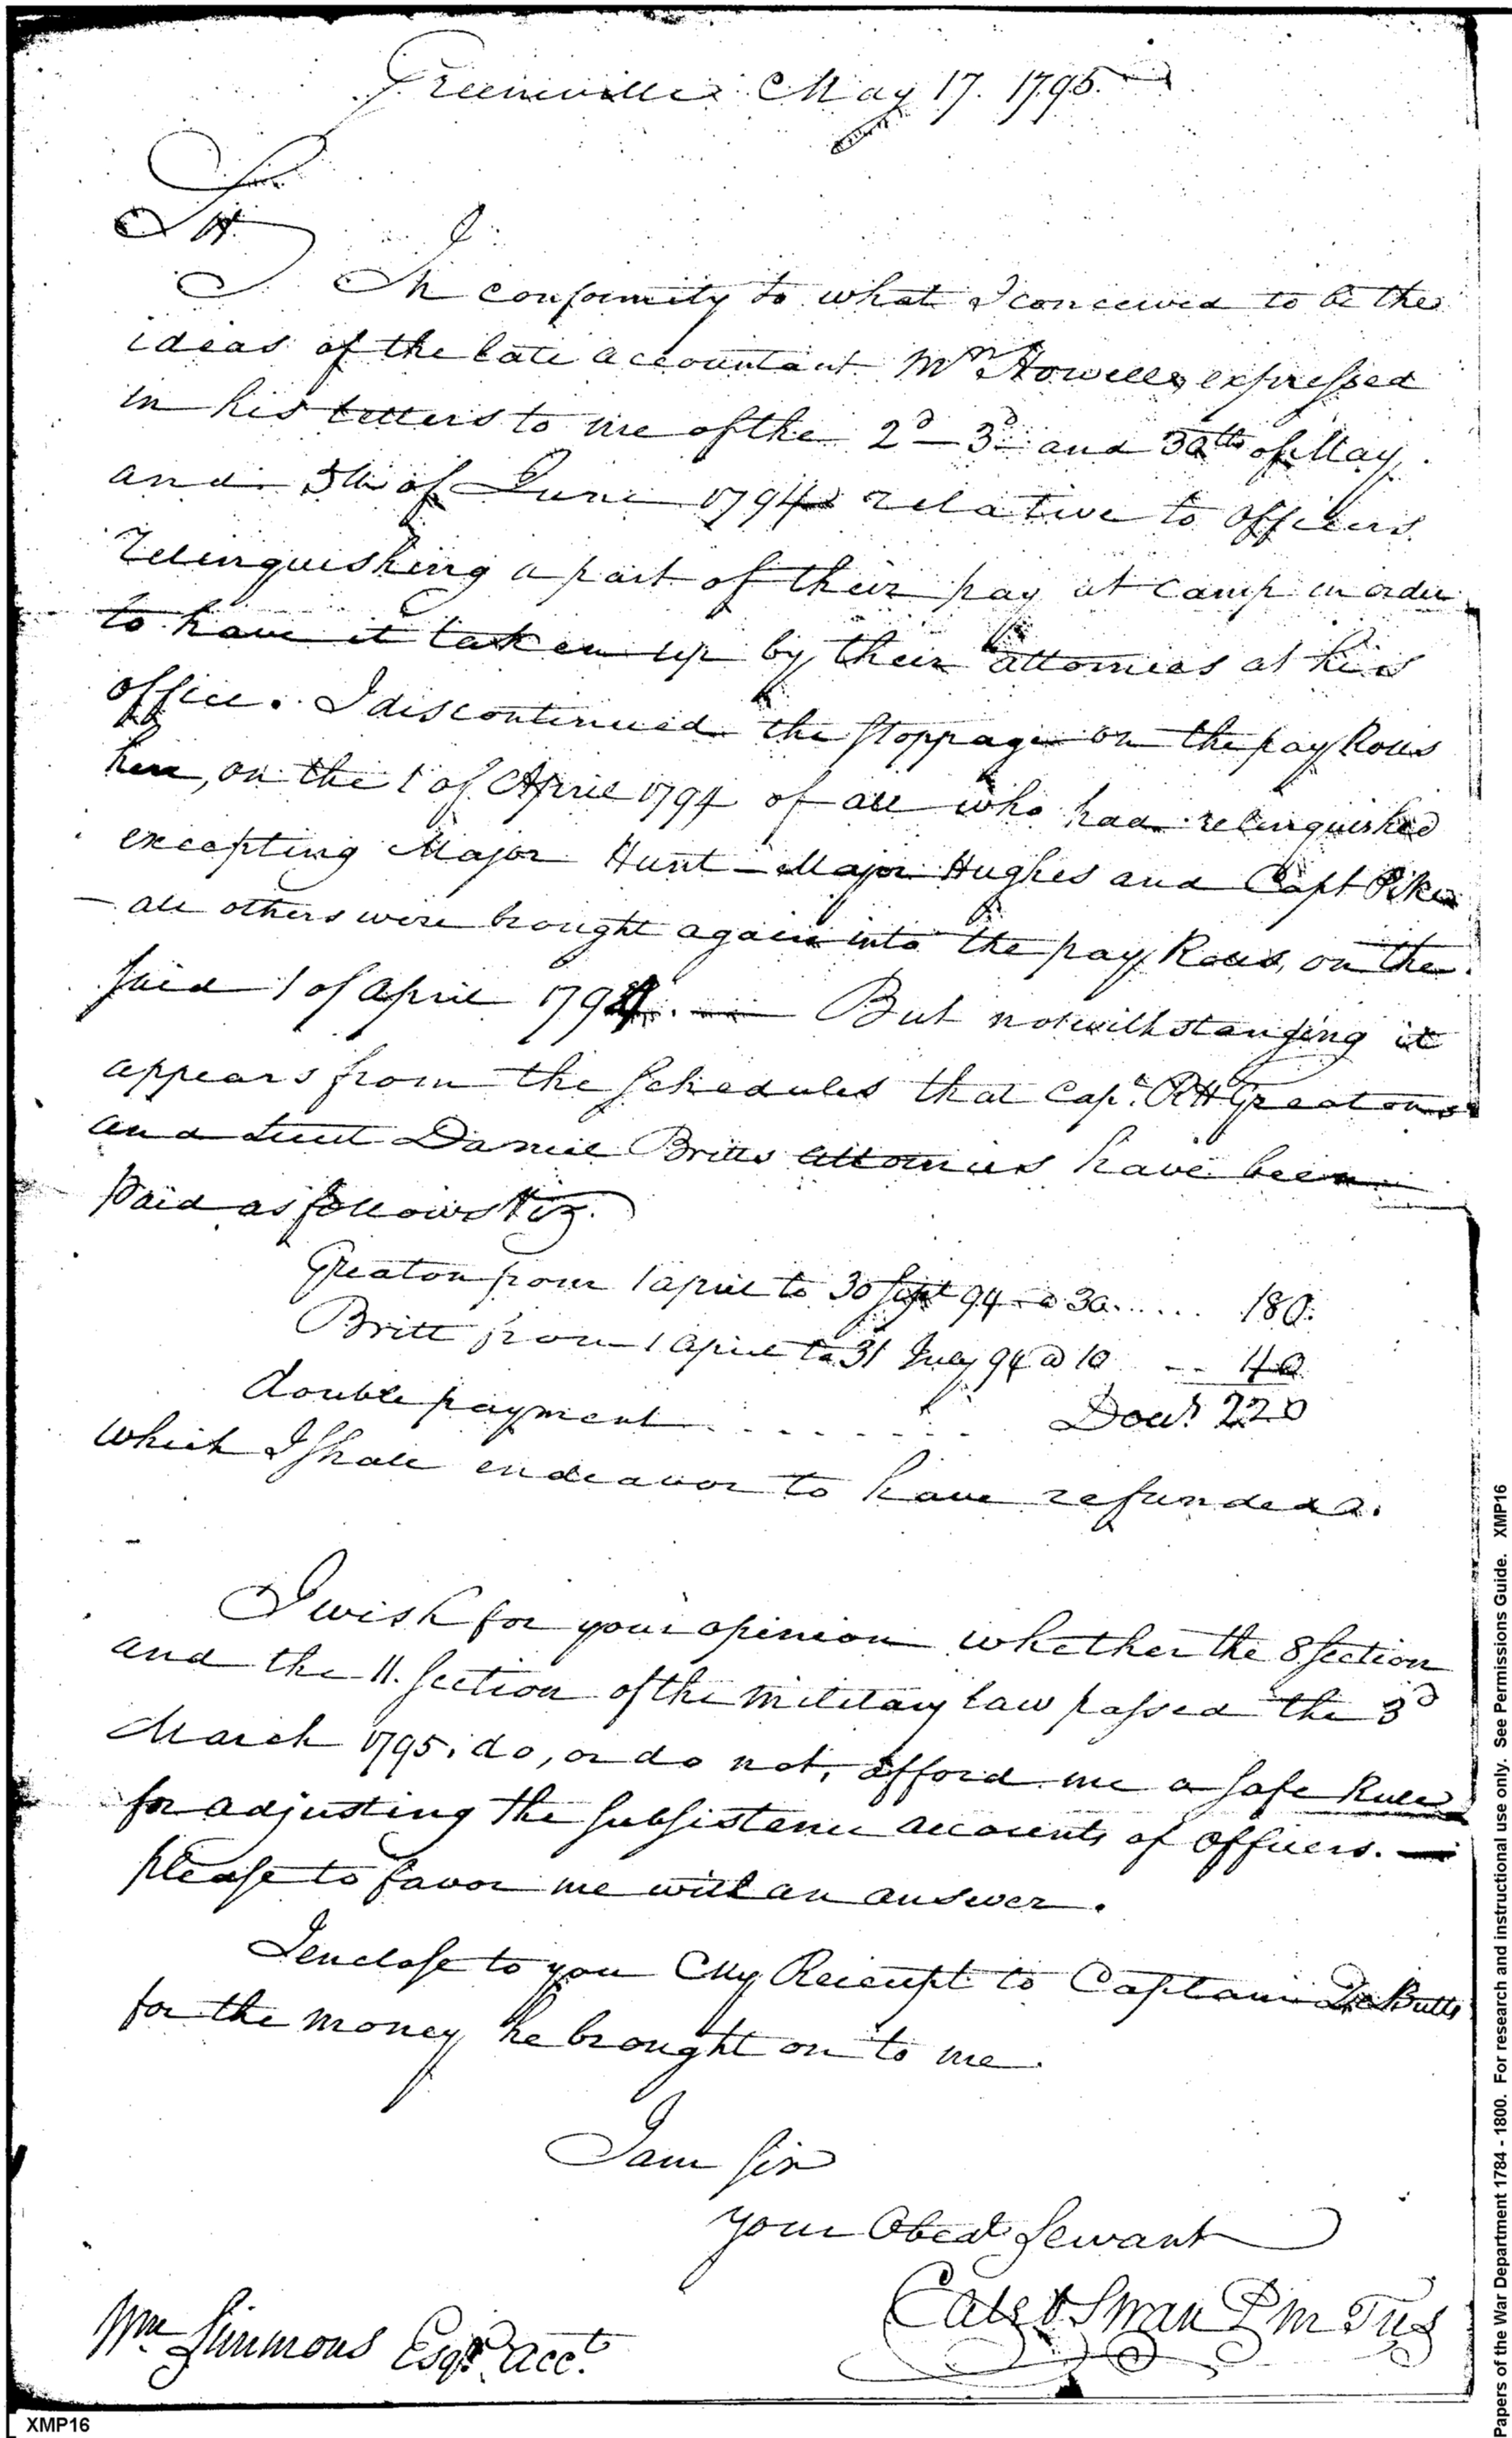 Greenville May 17. 1795.
Sir
In conformity to what I conceived to be the
ideas of the late accountant Mr. Howells expressed
in his letters to me of the 2d – 3d and 30th of May
and 5th of June 1794 relative to officers
relinquishing a part of their pay at camp in order
to have it taken up by their attornies at his
office. I discontinued the stoppage on the pay Rolls
here, on the 1 of April 1794 of all who had relinquished
excepting Major Hunt – Major Hughes and Capt Pike
– all others were brought again into the pay Rolls, on the
said 1 of April 1794. — But notwithstanding it
appears from the schedules that Capt. R H Greatons
and Lieut Daniel Britts attornies have been
paid as follows Viz.
Greaton from 1 april to 30 Sept 94 @ 30 ...... 180.
Britt from 1 april to 31 July 94 @ 10 -- 40
double payment ......... Dolls. 220
which I shall endeavor to have refunded.
I wish for your opinion whether the 8 section
and the 11. section of the military law passed the 3d
March 1795. do, or do not, afford me a safe Rule
for adjusting the subsistence accounts of officers. —
please to favor me with an answer.
I enclose to you My Receipt to Captain De Butts
for the money he brought on to me.
I am sir
your Obedt. Servant
Caleb Swan P M Tr U S
Wm Simmons Esqr. acct.
XMP16
Papers of the War Department 1784 - 1800. For research and instructional use only. See Permissions Guide. XMP16